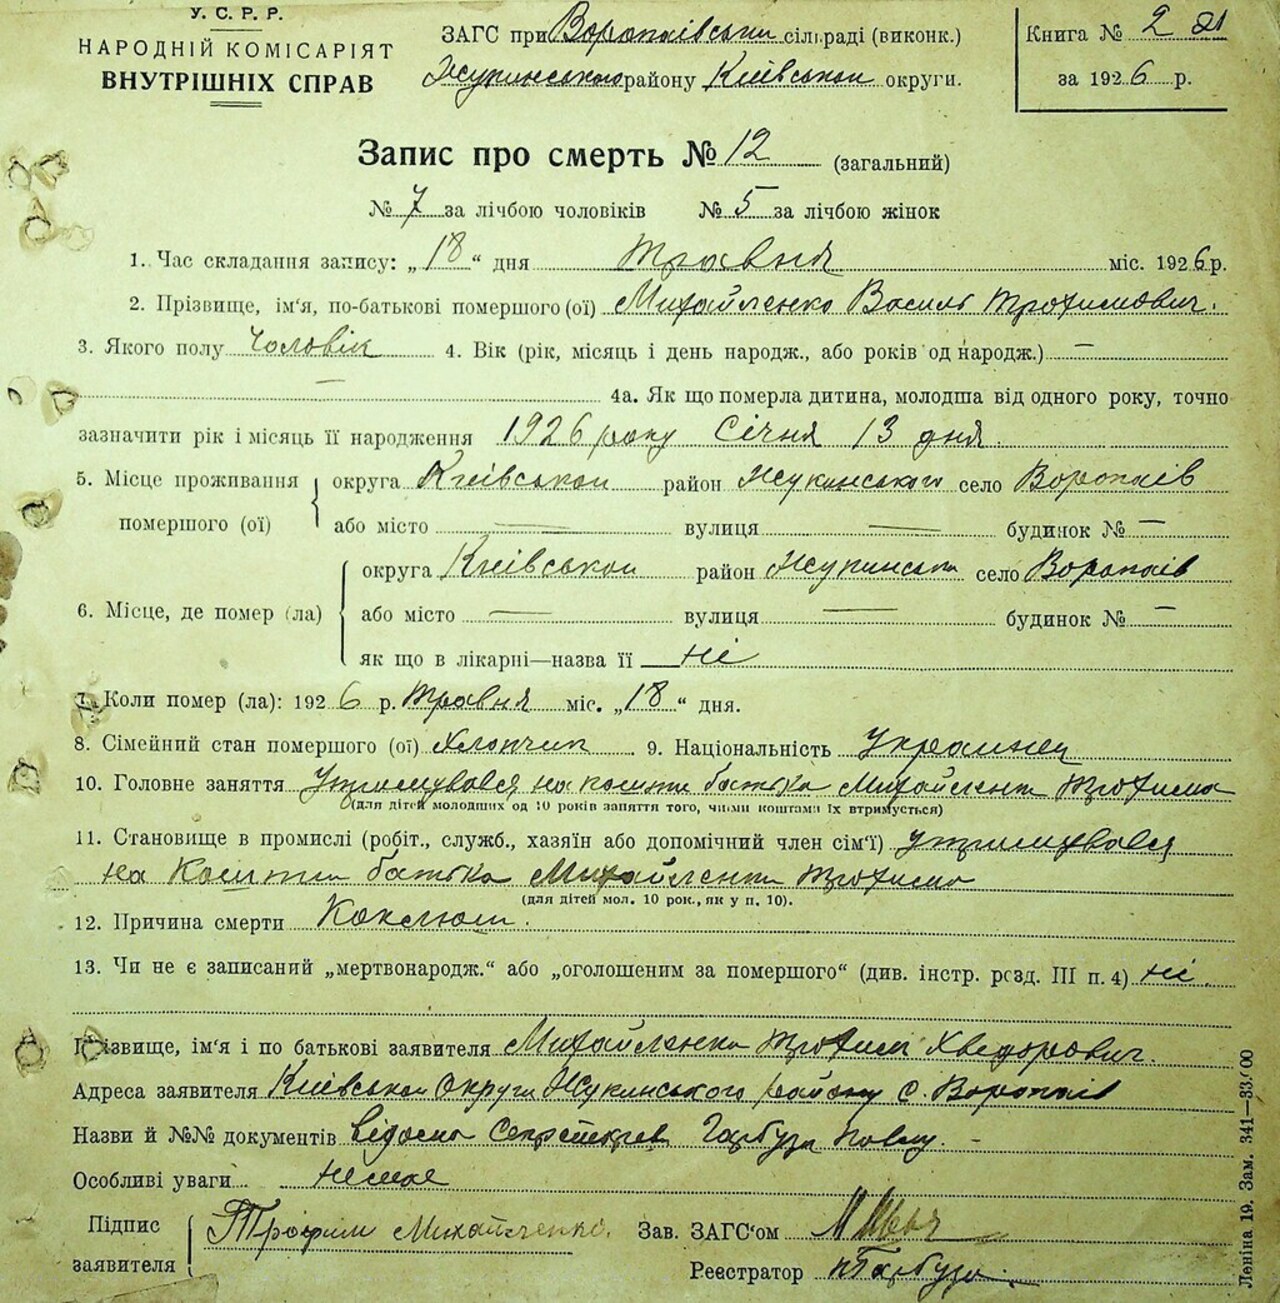 У. С. Р. Р.
НАРОДНІЙ КОМІСАРІЯТ
ВНУТРІШНІХ СПРАВ
ЗАГС при Воропаївськи сільраді (виконк.)
Жукинського району Київськои округи.
Книга № 2 21
за 1926 р.
Запис про смерть № 12 (загальний)
№ 7 за лічбою чоловіків № 5 за лічбою жінок
1. Час складання запису: „18“ дня Травня міс. 1926 р.
2. Прізвище, ім‘я, по-батькові помершого (ої) Михайленко Василь Трохимович.
3. Якого полу Чоловік 4. Вік (рік, місяць і день народж., або років од народж.) —
— 4а. Як що померла дитина, молодша від одного року, точно
зазначити рік і місяць її народження 1926 року Січня 13 дня.
5. Місце проживання помершого (ої) округа Київськои район Жукинського село Воропаїв
або місто — вулиця — будинок № —
6. Місце, де помер (ла) округа Київськои район Жукинськ село Воропаїв
або місто — вулиця — будинок № —
як що в лікарні—назва її ні
7. Коли помер (ла): 1926 р. Травня міс. „18“ дня.
8. Сімейний стан помершого (ої) Хлопчик 9. Національність Украинец
10. Головне заняття Утримувався на кошти батька Михайленк Трохима
(для дітей молодших од 10 років заняття того, чиїми коштами їх втримується)
11. Становище в промислі (робіт., служб., хазяїн або допомічний член сім‘ї) Утримувався
на Кошти батька Михайленка Трохима
(для дітей мол. 10 рок., як у п. 10).
12. Причина смерти Коклюш.
13. Чи не є записаний „мертвонародж.“ або „оголошеним за помершого“ (див. інстр. розд. III п. 4) ні.
Прізвище, ім‘я і по батькові заявителя Михайленко Трохим Хведорович.
Адреса заявителя Київськои Округи Жукинського району с. Воропаїв
Назви й №№ документів відомо Гарбузу Павлу. -
Особливі уваги немае
Підпис заявителя Трофим Михайленко.
Зав. ЗАГС‘ом
Реєстратор П Гарбуз
Леніна 19. Зам. 341—33.000